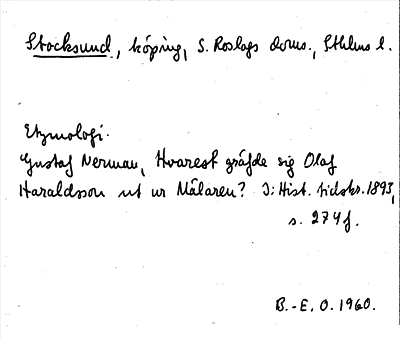 Stocksund, köping, S. Roslags doms., Sthlms l.
Etymologi.
Gustaf Nerman, Hvarest gräfde sig Olaf
Haraldsson ut ur Mälaren? I: Hist. tidskr. 1893,
s. 274 f.
B.-E. O. 1960.